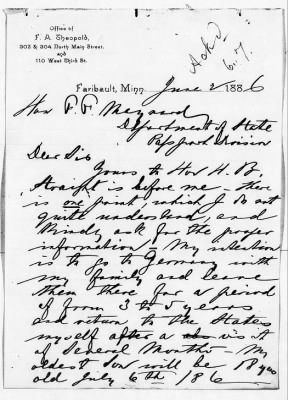 Office of
F. A. Theopold,
302 & 304 North Main Street,
and
110 West Third St.
Ack'd
6.7.
Faribault, Minn. June 2 1886
Hon F. F. Maynard
Department of State
Passport Division
Dear Sir
Yours to Hon H. B.
Straight is before me - there
is one point, which I do not
quite understand, and
Kindly ask for the proper
information - My intention
is to go to Germany with
my family and leave
them there for a period
of from 3 to 5 years
and return to the States
myself after a visit
of Several Months - My
oldest Son will be 18 yrs
old July 6th 1886